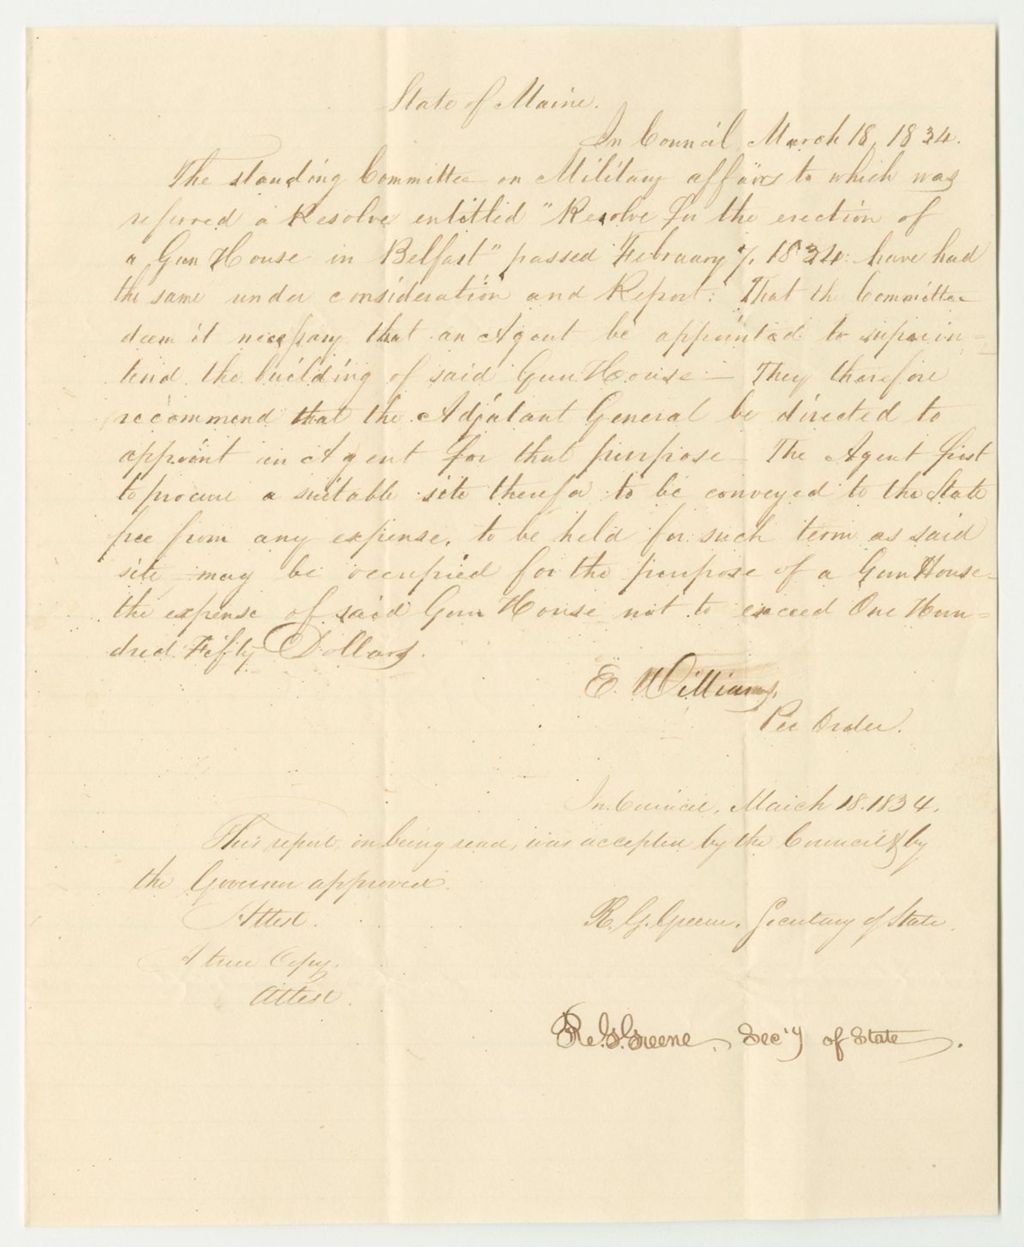 State of Maine.
In Council, March 18, 1834.
The standing Committee on Military affairs to which was
referred a Resolve entitled "Resolve for the erection of
a Gun House in Belfast" passed February 7, 1834: have had
the same under consideration and Report: That the Committee
deem it necessary that an Agent be appointed to superin-
tend the building of said Gun House — They therefore
recommend that the Adjutant General be directed to
appoint an Agent for that purpose — The Agent first
to procure a suitable site therefor to be conveyed to the State
free from any expense, to be held for such term as said
site may be occupied for the purpose of a Gun House —
the expense of said Gun House not to exceed One Hun-
dred Fifty Dollars.
E. Williams,
Per Order.
In Council, March 18. 1834.
This report, on being read, was accepted by the Council & by
the Governor approved.
Attest.
R. G. Greene, Secretary of State.
A true Copy.
Attest.
R. G. Greene, Sec'y of State.